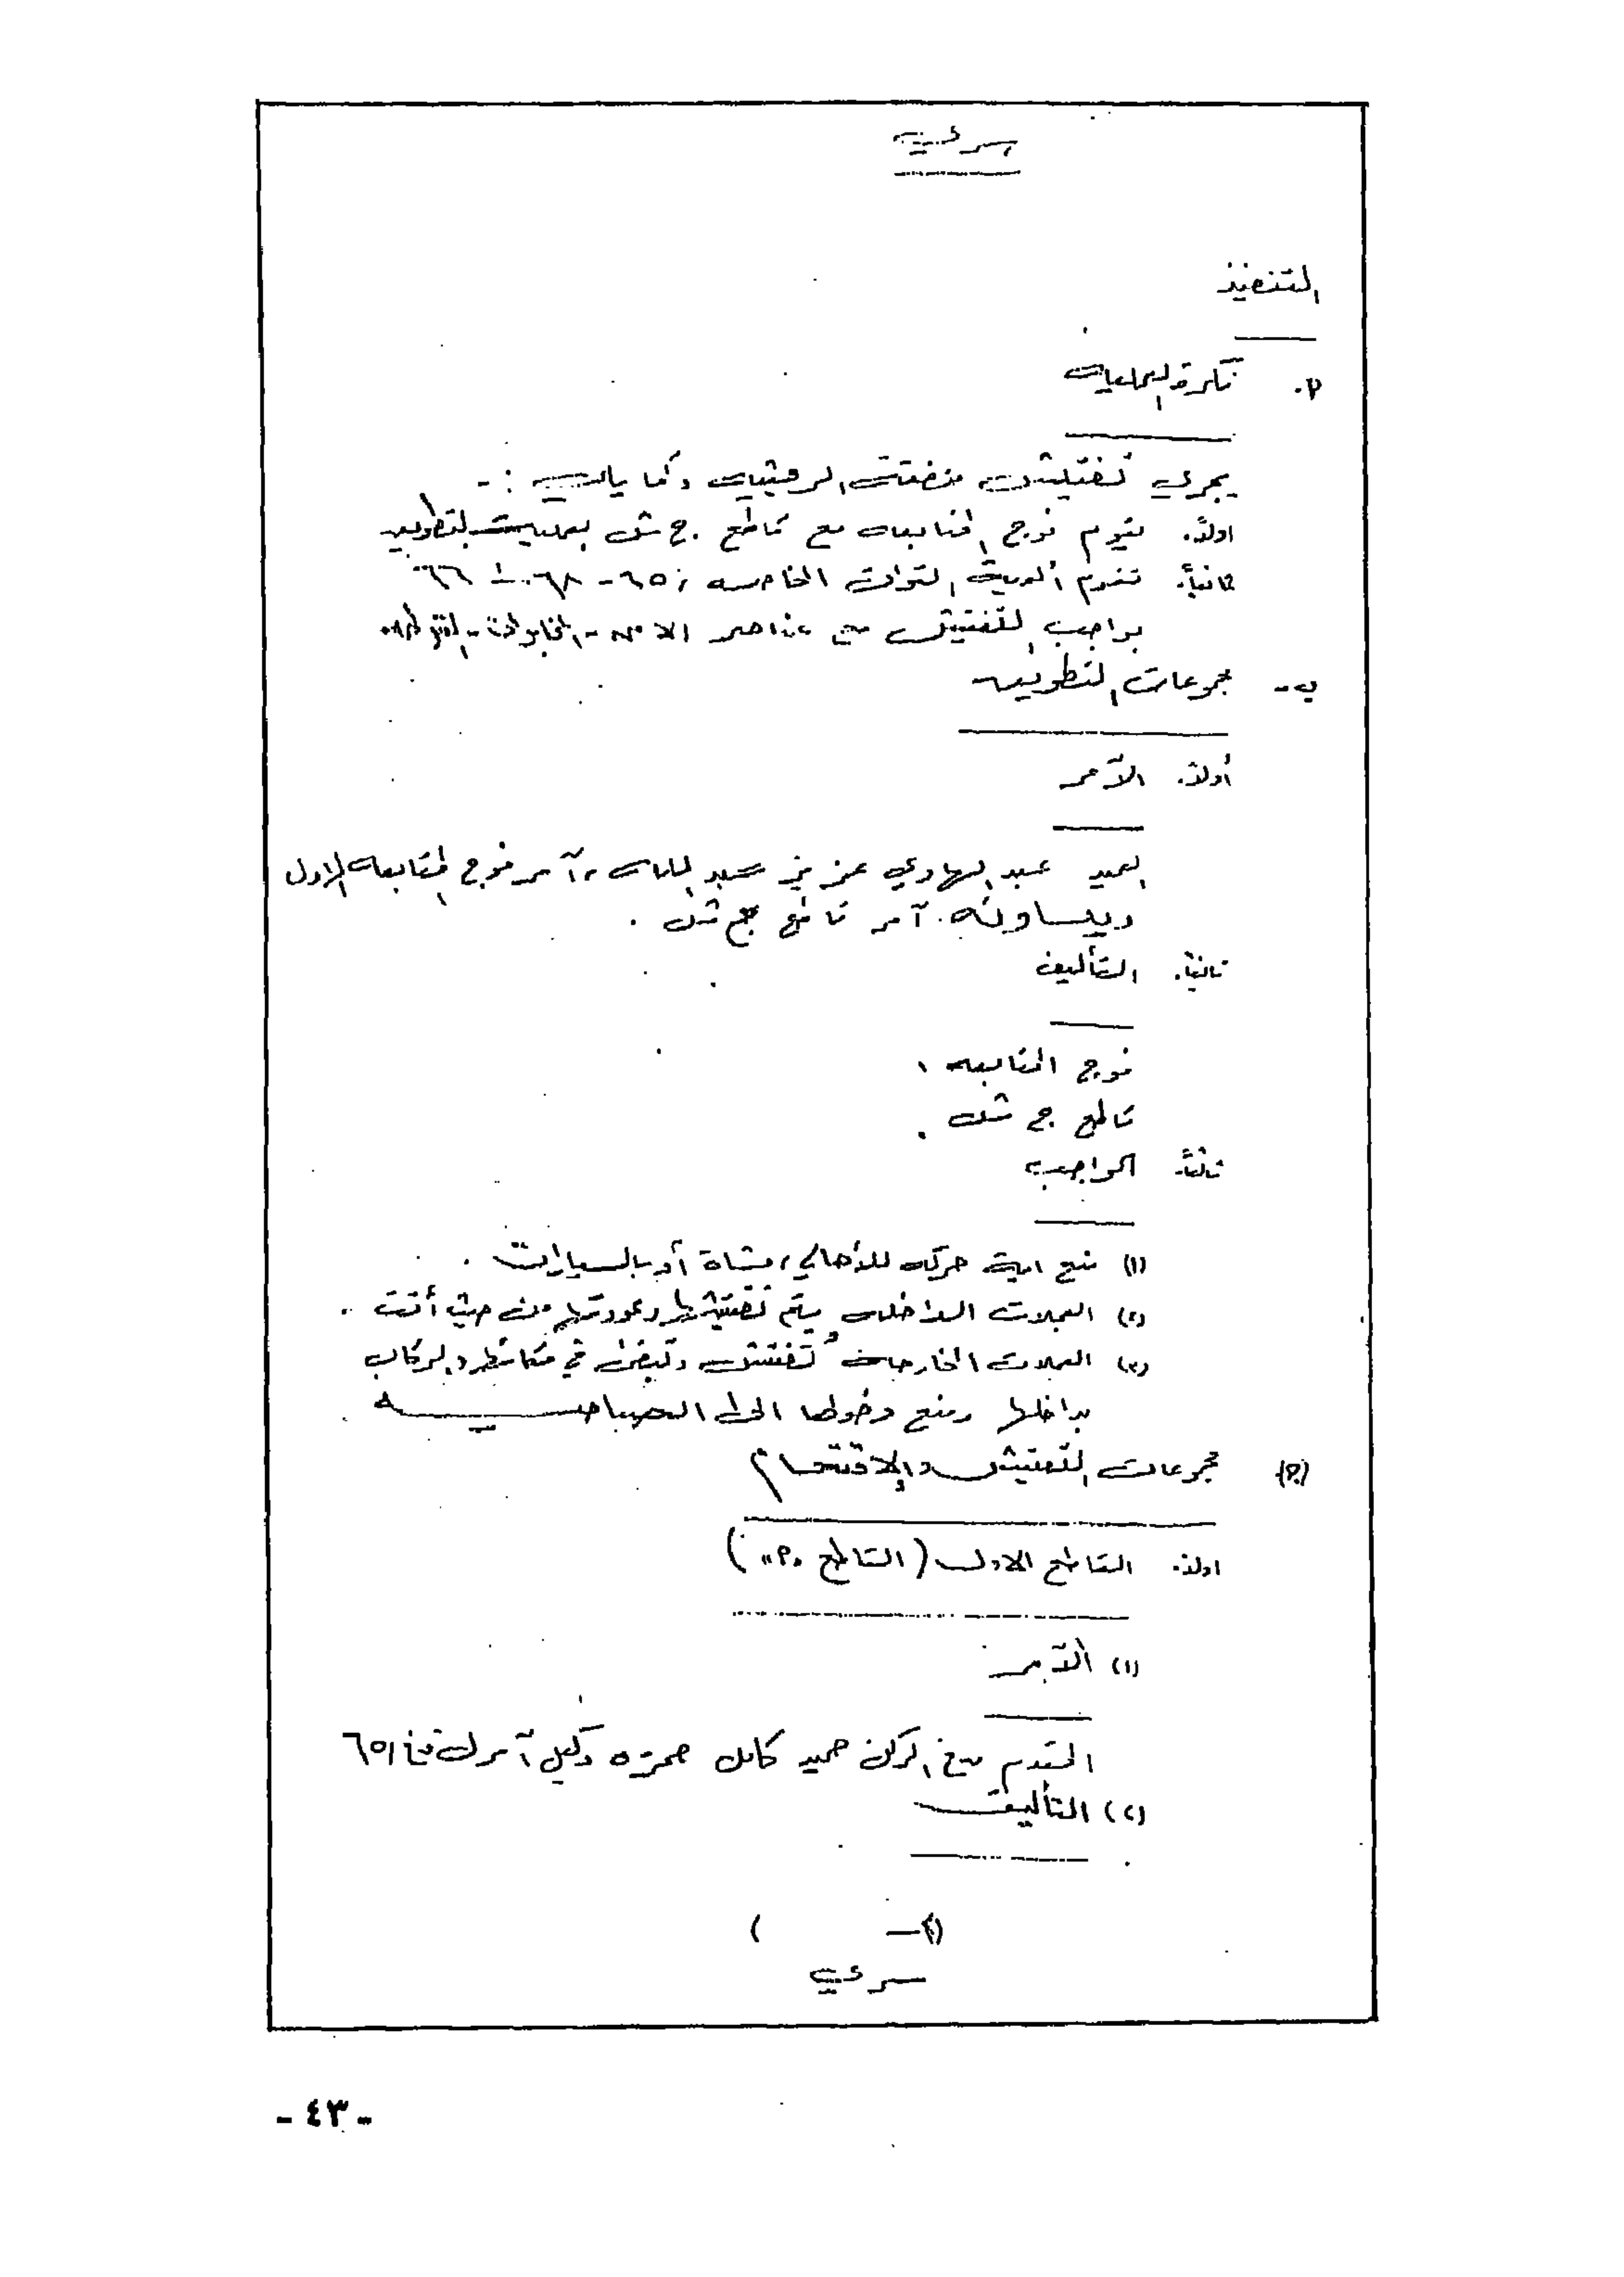 سري
التنفيذ
٢. فكرة العمليات
يجري تفتيش منطقة الرميثية وكما يلي :-
اولاً. يقوم فوج المتابعة مع قاطع ج ش بعملية التطويق
ثانياً. تقوم ألوية القوات الخاصة ٦٥ - ٦٨ - ٦٦
بواجب التفتيش مع عناصر الامن - المخابرات -
ب- مجموعات التطويق
أولاً. الآمر
العميد عبد الهادي عزيز عبد ، آمر فوج المتابعة الاول
ويساونه. آمر قاطع ج ش .
ثانياً. التأليف
فوج المتابعة ١
قاطع ج ش .
ثالثاً. الواجب
(١) منع اية حركة للأهالي، مشاة أو بالسيارات .
(٢) العجلات الداخلة يتم تفتيشها وعودتها من حيث أتت .
(٣) العجلات الخارجة تفتش وتبقى في مكانها والركاب
بداخلها ومنع دخولها الى
(ج) مجموعات التفتيش والاقتحام
اولاً. القاطع الاول (القاطع "م")
(١) الآمر
المقدم ق خ الركن حميد كامل حمزه وكيل آمر ل ق خ ٦٥
(٢) التأليف
( -٢)
سري
- ٤٣ -